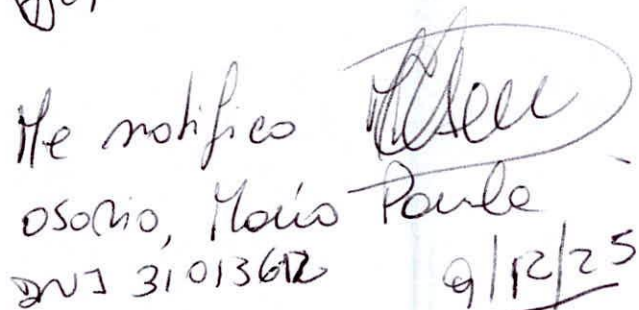 Me notifico
Osorio, María Paula
DNI 31013612
9/12/25